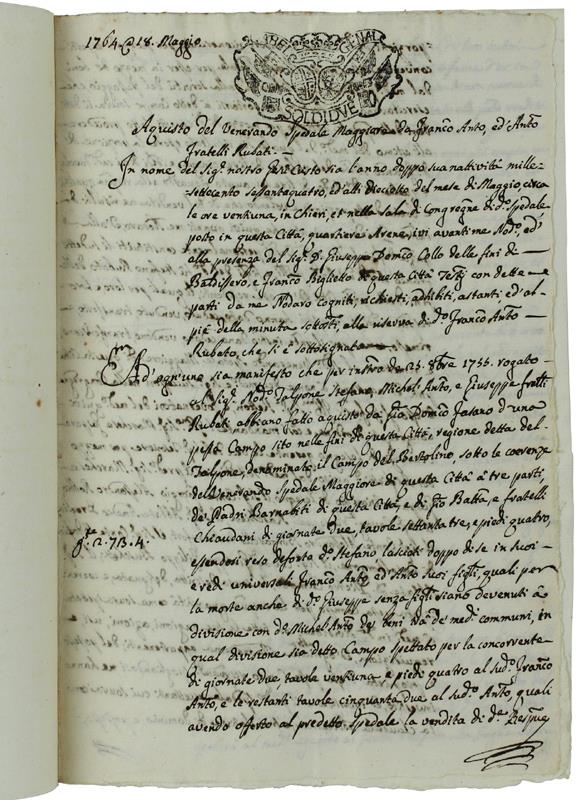 1764 @ 18. Maggio
SOLDI DVE
Aquisto del Venerando Spedale Maggiore da Franco Anto, ed' Anto
Fratelli Rubati.
In nome del Sigr nostro Gesù Cristo sia l'anno doppo sua natività mille-
settecento sessantaquatro, ed' alli dieciotto del mese di Maggio circa
le ore ventiuna, in Chieri, et nella Sala di Congregne di do Spedale
posto in questa Città, quartiere Arene, ivi avanti me Nodo, ed'
alla presenza del Sigr Dr Giuseppe Domco Collo delle fini di
Baldissero, e Franco Biglietto di questa Città Testj con dette
parti da me Nodaro Cogniti, richiesti, adhibiti, astanti, ed' al
piè della minuta sottotti, alla riserva di do Franco Anto
Rubato, che si è sottosignato
Ad ogn'uno sia manifesto che per instro de 25. 8bre 1755. rogato
al Sigr Nodo Talpone Stefano, Michel Anto, e Giuseppe fratti
Rubati abbiano fatto aquisto da Gio Domco Fasano d'una
pezza Campo sito nelle fini di questa Città, regione detta del
Talpone, denominato il Campo del Bertolino, sotto le coerenze
del Venerando Spedale Maggiore di questa Città à tre parti,
de' Padri Barnabiti di questa Città, e di Gio Batta, e fratelli
Chiaudani di giornate due, tavole settanta tre, e piedi quatro,
gte 2. 73. 4.
essendosi reso defonto do Stefano lasciati doppo di se in suoi
eredi universali Franco Anto ed' Anto suoi figlj, quali per
la morte anche di do Giuseppe senza figlj siano devenuti à
divisione con do Michel Anto de' beni trà de' medi communi, in
qual divisione sia detto Campo spettato per la concorrente
di giornate due, tavole ventiuna, e piedi quatro al sudo Franco
Anto, e le restanti tavole cinquanta due al sudo Anto, quali
avendo offerto al predetto Spedale la vendita di da